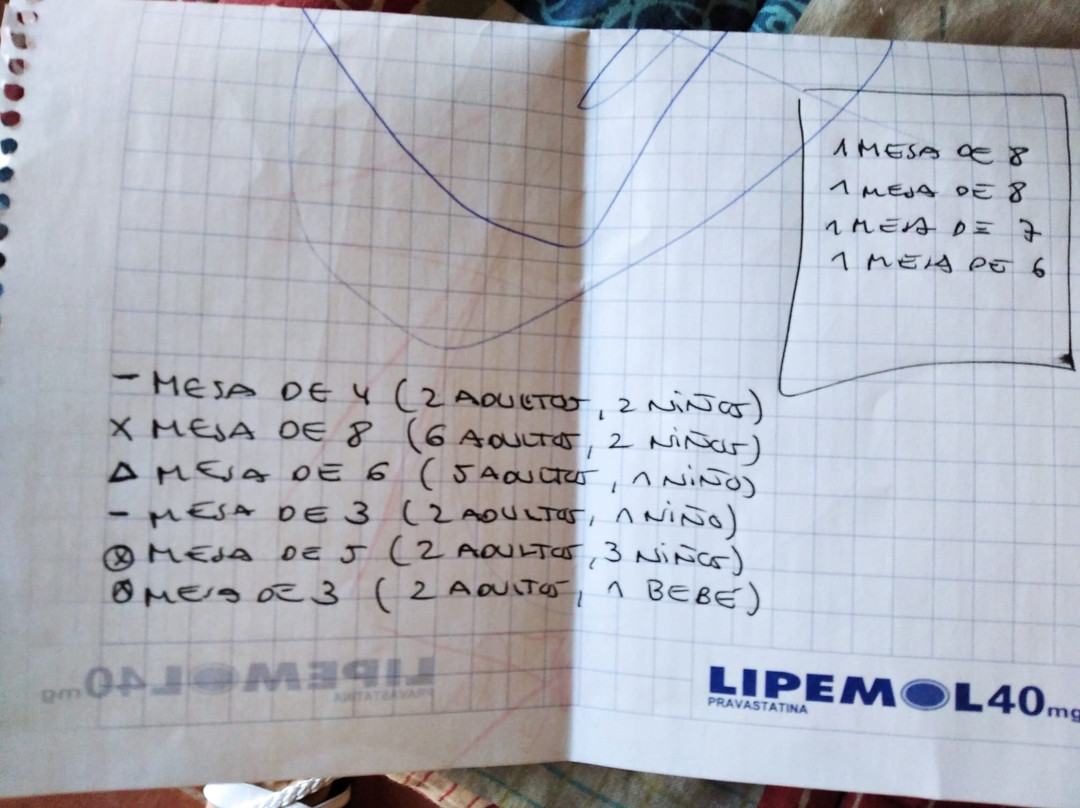 1 MESA DE 8
1 MESA DE 8
1 MESA DE 7
1 MESA DE 6
– MESA DE 4 (2 ADULTOS, 2 NIÑOS)
X MESA DE 8 (6 ADULTOS, 2 NIÑOS)
Δ MESA DE 6 (5 ADULTOS, 1 NIÑO)
– MESA DE 3 (2 ADULTOS, 1 NIÑO)
ⓧ MESA DE 5 (2 ADULTOS, 3 NIÑOS)
ⓧ MESA DE 3 (2 ADULTOS, 1 BEBÉ)
LIPEMOL 40 mg
PRAVASTATINA
LIPEMOL 40 mg
PRAVASTATINA